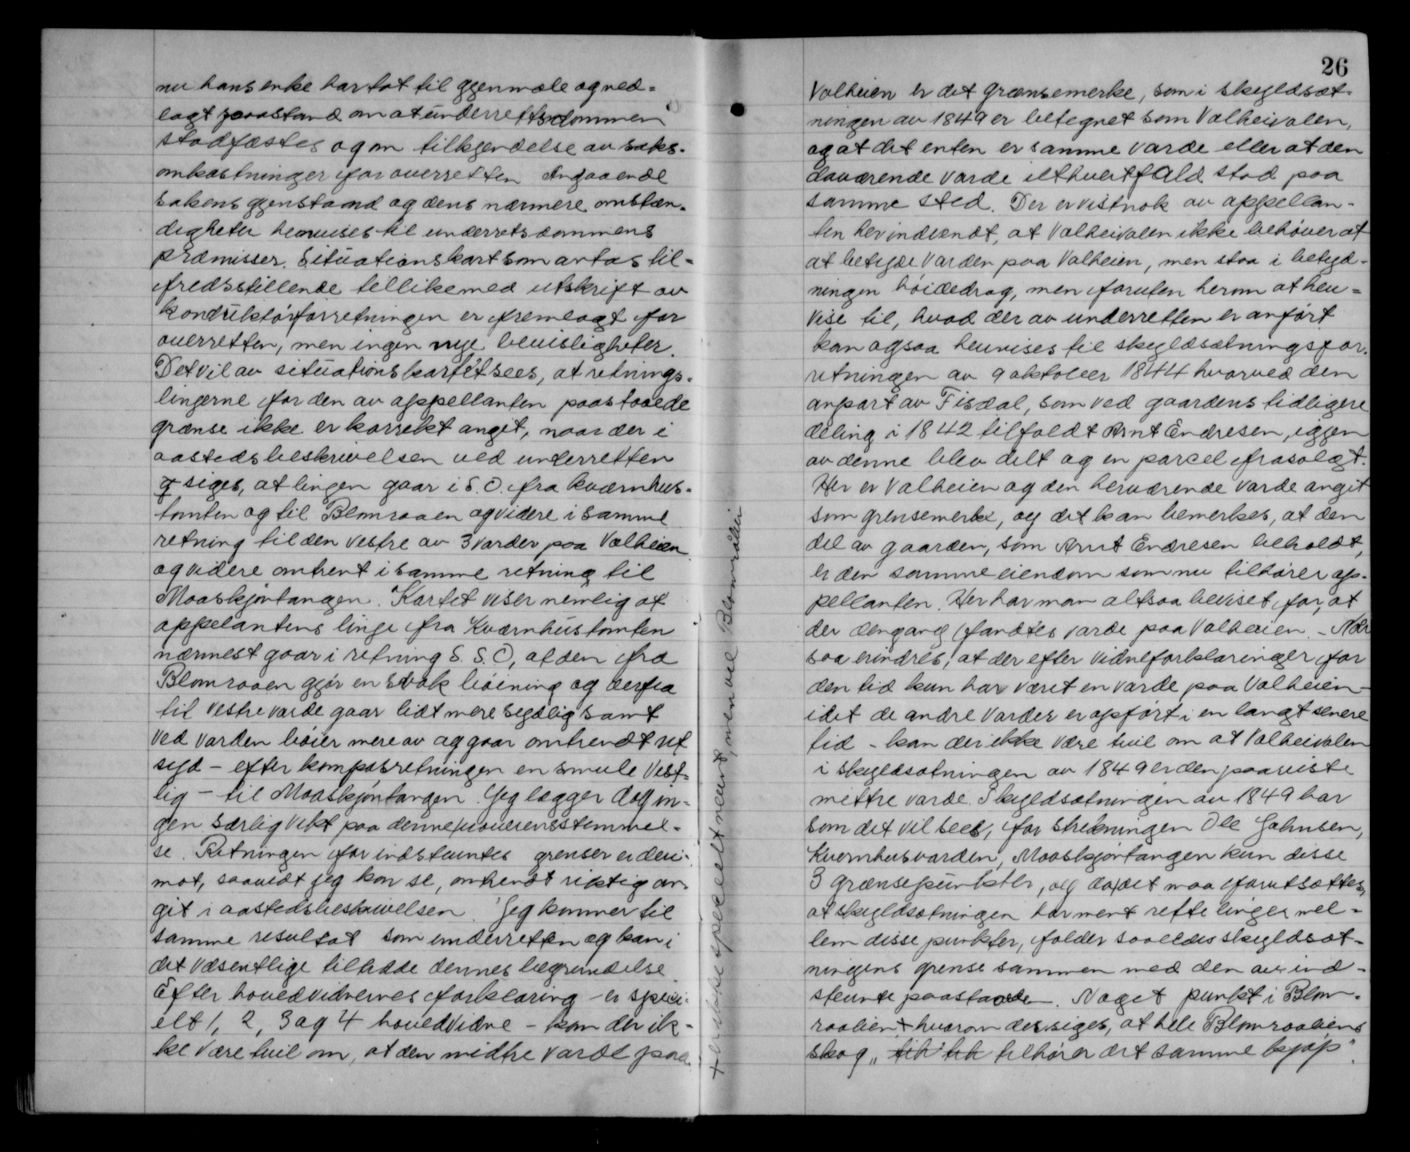 nu hans enke har tat til gjenmæle og ned-
lagt paastand om at underrettsdommen
stadfæstes og om tilkjendelse av saks-
omkostninger for overretten Angaaende
sakens gjenstand og dens nærmere omstæn-
digheter henvises til underretsdommens
præmisser. Situationskart som antas til-
fredsstillende tillikemed utskrift av
konduktørforretningen er fremlagt for
overretten, men ingen nye bevisligheter.
Det vil av situationskartet sees, at retnings-
linjerne for den av appellanten paastaaede
grænse ikke er korrekt anget, naar der i
aastedsbeskrivelsen ved underretten
siges, at linjen gaar i S.O. fra kværnhus-
tomten og til Blomraaen og videre i samme
retning til den vestre av 3 varder paa Valheien
og videre omtrent i samme retning til
Maaskjøntangen. Kartet viser nemlig at
appelantens linje fra Kværnhustomten
nærmest gaar i retning S.S.O, at den fra
Blomraaen gjør en svak bøining og derfra
til vestre varde gaar lidt mere sydlig samt
ved varden bøier mere av og gaar omtrendt ret
syd - efter kompasretningen en smule vest-
lig - til Maaskjøntangen. Jeg lægger dog in-
gen særlig vekt paa denne uoverensstemmel-
se. Retningen for indstevntes grenser er deri-
mot, saavidt jeg kan se, omtrendt riktig an-
git i aastedsbeskrivelsen. Jeg kommer til
samme resultat som underretten og kan i
det væsentlige tiltræde dennes begrundelse.
Efter hovedvidnernes forklaring - er speci-
elt 1, 2, 3 og 4 hovedvidne - kan der ik-
ke være tvil om, at den midtre varde paa
+ er ikke specielt nevnt, men vel Blområlien
26
Valheien er det grænsemerke, som i skyldsæt-
ningen av 1849 er betegnet som Valheivolen,
og at det enten er samme varde eller at den
daværende varde ialfald stod paa
samme sted. Der er vistnok av appellan-
ten her indvendt, at Valheivolen ikke behøver at
at betyde varden paa Valheien, men staa i betyd-
ningen høidedrag, men foruten herom at hen-
vise til, hvad der av underretten er anført
kan ogsaa henvises til skyldsætningsfor-
retningen av 9 oktober 1844 hvorved den
anpart av Fisdal, som ved gaardens tidligere
deling i 1842 tilfaldt Arnt Endresen, igjen
av denne blev delt og en parcel frasolgt.
Her er Valheien og den herværende varde angit
som grensemerke, og det kan bemerkes, at den
del av gaarden, som Arnt Endresen beholdt,
er den samme eiendom som nu tilhører ap-
pellanten. Her har man altsaa beviset for, at
der dengang fandtes varde paa Valheien. - Naar
saa erindres, at der efter vidneforklaringer for
den tid kun har været en varde paa Valheien -
idet de andre varder er opført i en langt senere
tid - kan der ikke være tvil om at Valheivolen
i skyldsætningen av 1849 er den paaviste
mittre varde. Skyldsætningen av 1849 har
som det vil sees, for strekningen Ole Johnsen,
Kvernhusvarden, Maaskjøntangen kun disse
3 grænsepunkter, og da det maa forutsættes,
at skyldsætningen har ment rette linjer mel-
lem disse punkter, falder saaledes skyldsæt-
ningens grense sammen med den av ind-
stevnte paastaaede. Noget punkt i Blom-
raalien + hvorom der siges, at hele Blomraaliens
skog "tilhører det samme kjøp".